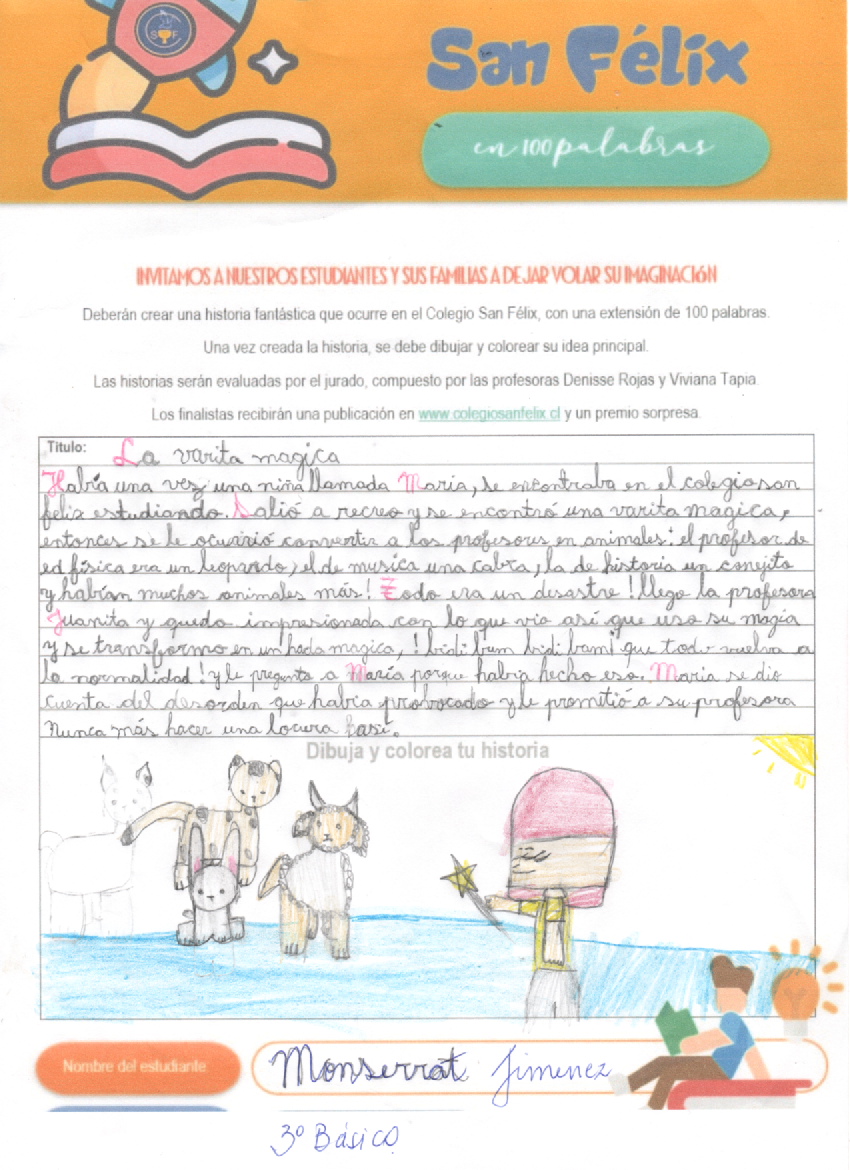 SF
San Félix
en 100 palabras
INVITAMOS A NUESTROS ESTUDIANTES Y SUS FAMILIAS A DEJAR VOLAR SU IMAGINACIÓN
Deberán crear una historia fantástica que ocurre en el Colegio San Félix, con una extensión de 100 palabras.
Una vez creada la historia, se debe dibujar y colorear su idea principal.
Las historias serán evaluadas por el jurado, compuesto por las profesoras Denisse Rojas y Viviana Tapia.
Los finalistas recibirán una publicación en www.colegiosanfelix.cl y un premio sorpresa.
Titulo: La varita magica
Había una vez una niña llamada Maria, se encontraba en el colegio san
felix estudiando. Salió a recreo y se encontró una varita magica,
entonces se le ocurrió convertir a los profesores en animales: el profesor de
ed física era un leopardo, el de musica una cabra, la de historia un conejito
y habían muchos animales más! Todo era un desastre! llego la profesora
Juanita y quedo impresionada con lo que vio así que uso su magia
y se transformo en un hada magica, ! bidi bum bidi bam! que todo vuelva a
la normalidad! y le pregunto a María porque habia hecho eso. Maria se dio
cuenta del desorden que habia provocado y le prometió a su profesora
Nunca más hacer una locura así.
Dibuja y colorea tu historia
Nombre del estudiante
Monserrat Jimenez
3º Básico